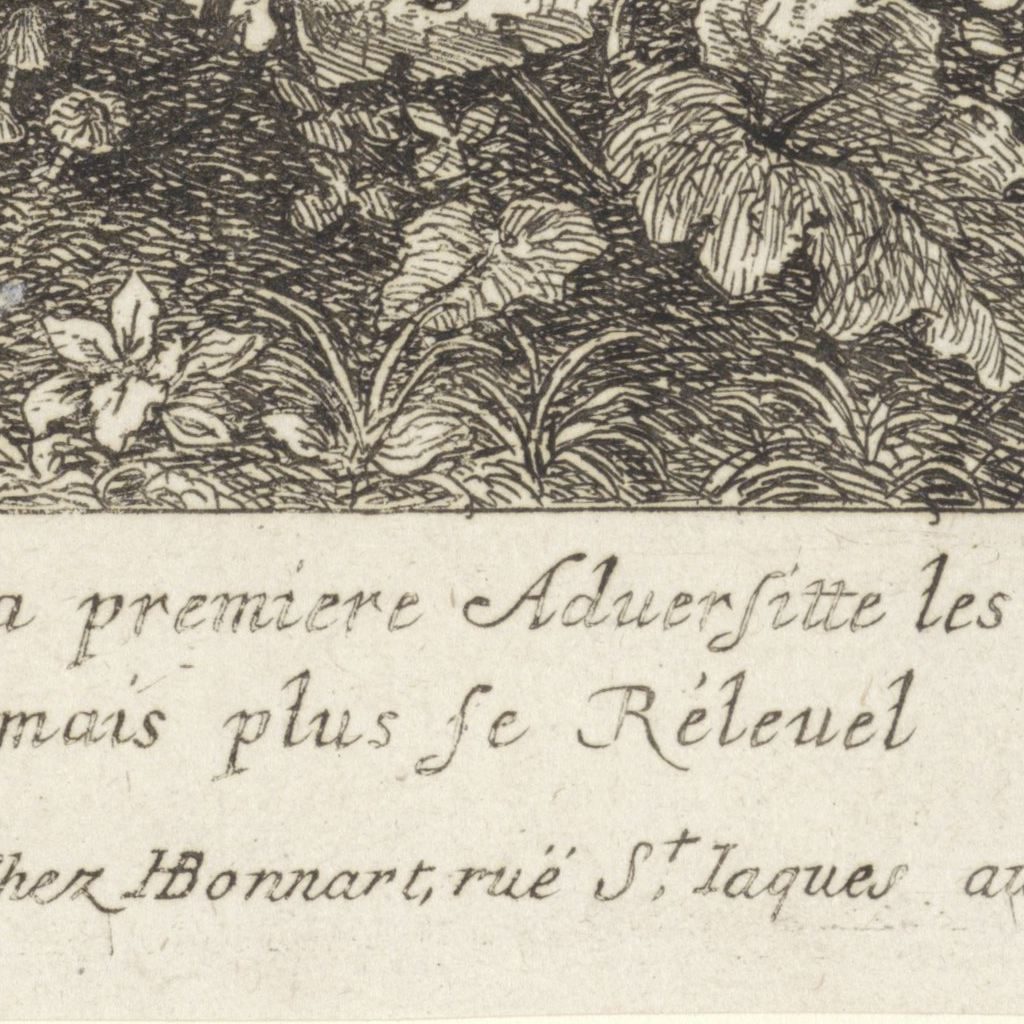 a premiere Aduerſitte les
mais plus ſe Réleuel
chez HBonnart, ruë S.t Iaques au